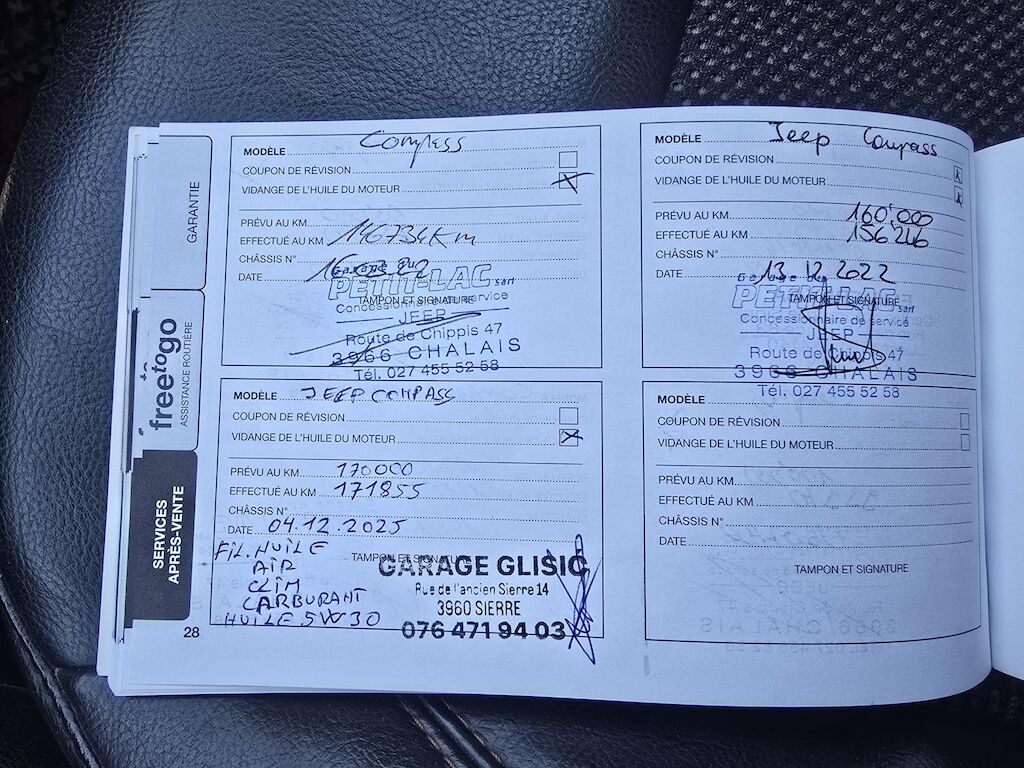 GARANTIE
freetogo
ASSISTANCE ROUTIÈRE
SERVICES
APRÈS-VENTE
MODÈLE Compass
COUPON DE RÉVISION
VIDANGE DE L'HUILE DU MOTEUR X
PRÉVU AU KM
EFFECTUÉ AU KM 146734 Km
CHÂSSIS N°
DATE
Garage du
PETIT-LAC sàrl
TAMPON ET SIGNATURE
Concessionnaire de service
JEEP
Route de Chippis 47
3966 CHALAIS
Tél. 027 455 52 58
MODÈLE Jeep Compass
COUPON DE RÉVISION X
VIDANGE DE L'HUILE DU MOTEUR X
PRÉVU AU KM 160'000
EFFECTUÉ AU KM 156'246
CHÂSSIS N°
DATE 13.12.2022
Garage du
PETIT-LAC sàrl
TAMPON ET SIGNATURE
Concessionnaire de service
JEEP
Route de Chippis 47
3966 CHALAIS
Tél. 027 455 52 58
MODÈLE JEEP COMPASS
COUPON DE RÉVISION
VIDANGE DE L'HUILE DU MOTEUR X
PRÉVU AU KM 170000
EFFECTUÉ AU KM 171855
CHÂSSIS N°
DATE 04.12.2025
TAMPON ET SIGNATURE
FIL. HUILE
AIR
CLIM
CARBURANT
HUILE 5W30
GARAGE GLISIC
Rue de l'ancien Sierre 14
3960 SIERRE
076 471 94 03
MODÈLE
COUPON DE RÉVISION
VIDANGE DE L'HUILE DU MOTEUR
PRÉVU AU KM
EFFECTUÉ AU KM
CHÂSSIS N°
DATE
TAMPON ET SIGNATURE
28